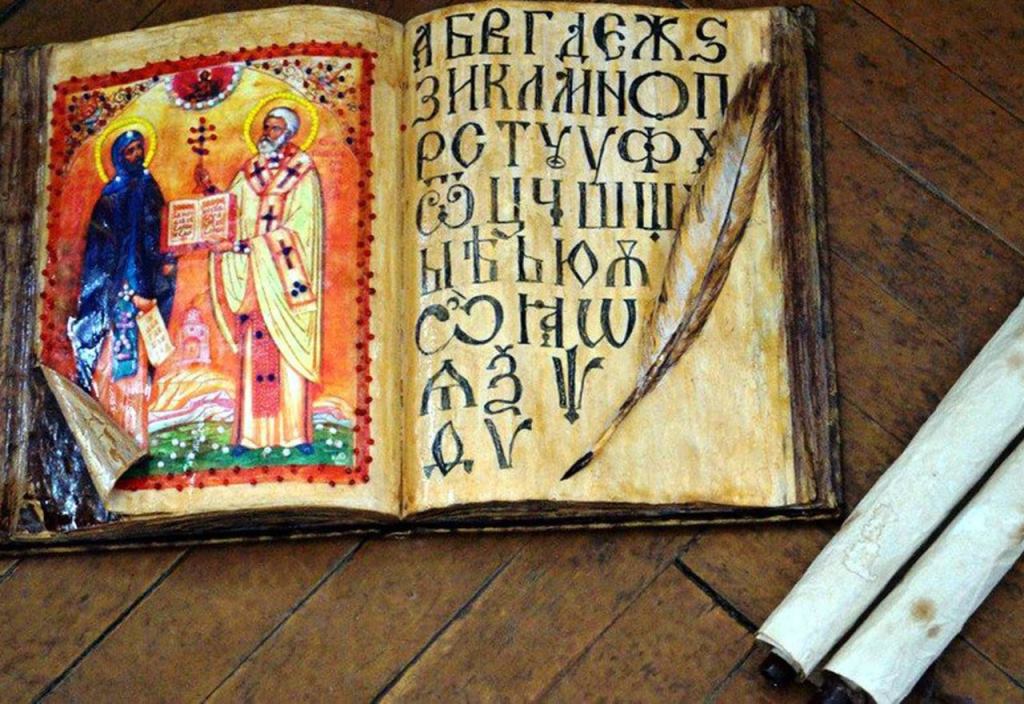 А Б В Г Д Е Ж Ѕ
З И К Л М Н О П
Р С Т Ѹ У Ф Х
Ѿ Ц Ч Ш Щ
Ы Ѣ Ь Ю Ѫ
Ѽ Ꙗ Ѡ
Ѧ Ѯ Ѱ
Ѳ Ѵ